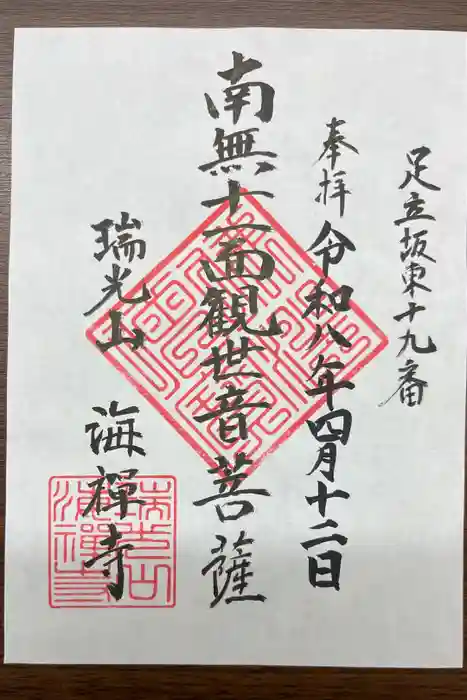 足立坂東十九番
奉拝
令和八年四月十二日
南無十一面観世音菩薩
瑞光山
海禅寺
瑞光山
海禅寺